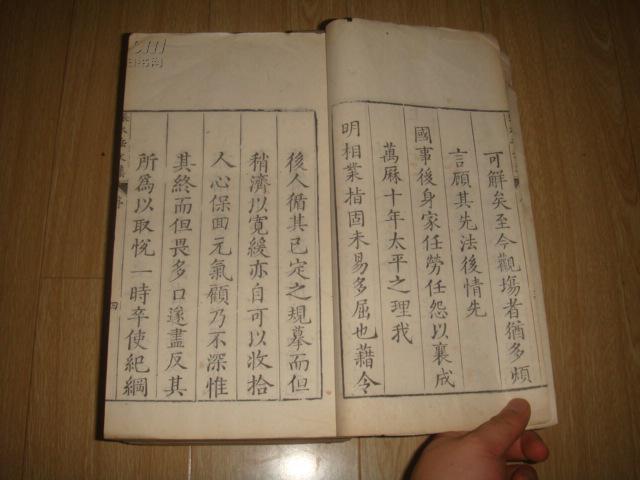 可解矣至今觀塲者猶多頻
言顧其先法後情先
國事後身家任勞任怨以襄成
萬厤十年太平之理我
明相業指固未易多屈也藉令
後人循其已定之規摹而但
稍濟以寬緩亦自可以收拾
人心保固元氣顧乃不深惟
其終而但畏多口遂盡反其
所爲以取悅一時卒使紀綱
序
四